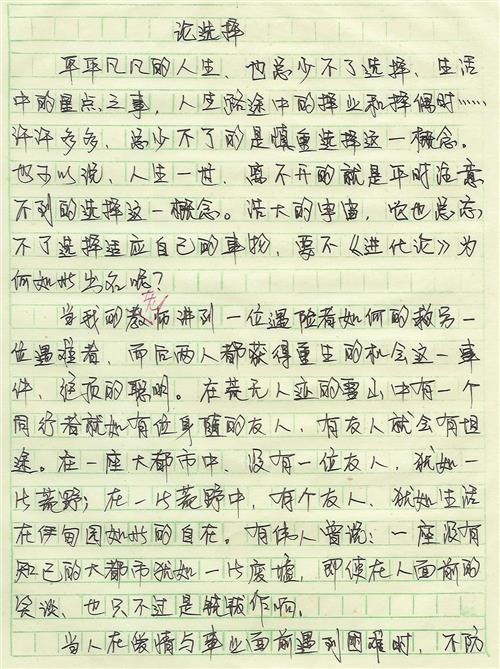 论选择
平平凡凡的人生，也总少不了选择，生活
中的星点之事，人生路途中的择业和择偶时……
许许多多，总少不了的是慎重选择这一概念。
也可以说，人生一世，离不开的就是平时注意
不到的选择这一概念。浩大的宇宙，它也总忘
不了选择适应自己的事物，要不《进化论》为
何如此出名呢？
当我的老师讲到一位遇险者如何的救另一
位遇难者，而后两人都获得重生的机会这一事
件，绝顶的聪明。在荒无人迹的雪山中有一个
同行者就如有位身随的友人，有友人就会有坦
途。在一座大都市中，没有一位友人，犹如一
片荒野；在一片荒野中，有个友人，犹如生活
在伊甸园如此的自在。有伟人曾说：一座没有
知己的大都市犹如一片废墟，即使在人面前的
笑谈，也只不过是铙钹作响。
当人在爱情与事业面前遇到困难时，不防